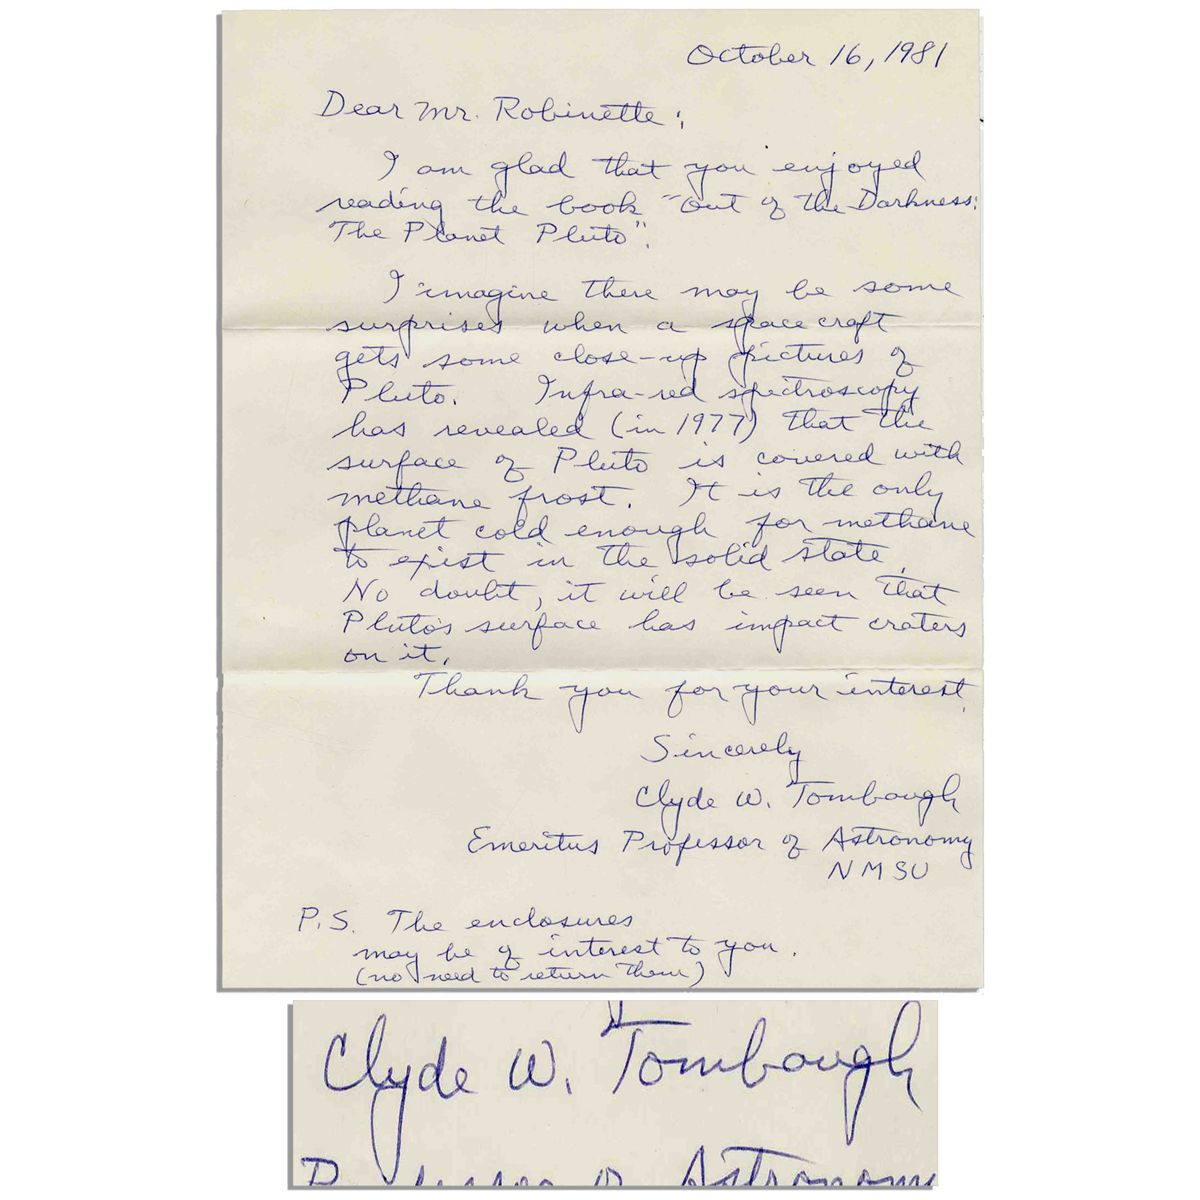 October 16, 1981
Dear Mr. Robinette:
I am glad that you enjoyed
reading the book "Out of the Darkness:
The Planet Pluto".
I imagine there may be some
surprises when a spacecraft
gets some close-up pictures of
Pluto. Infra-red spectroscopy
has revealed (in 1977) that the
surface of Pluto is covered with
methane frost. It is the only
planet cold enough for methane
to exist in the solid state.
No doubt, it will be seen that
Pluto's surface has impact craters
on it.
Thank you for your interest.
Sincerely
Clyde W. Tombaugh
Emeritus Professor of Astronomy
NMSU
P.S. The enclosures
may be of interest to you.
(no need to return them)
Clyde W. Tombaugh
Professor of Astronomy